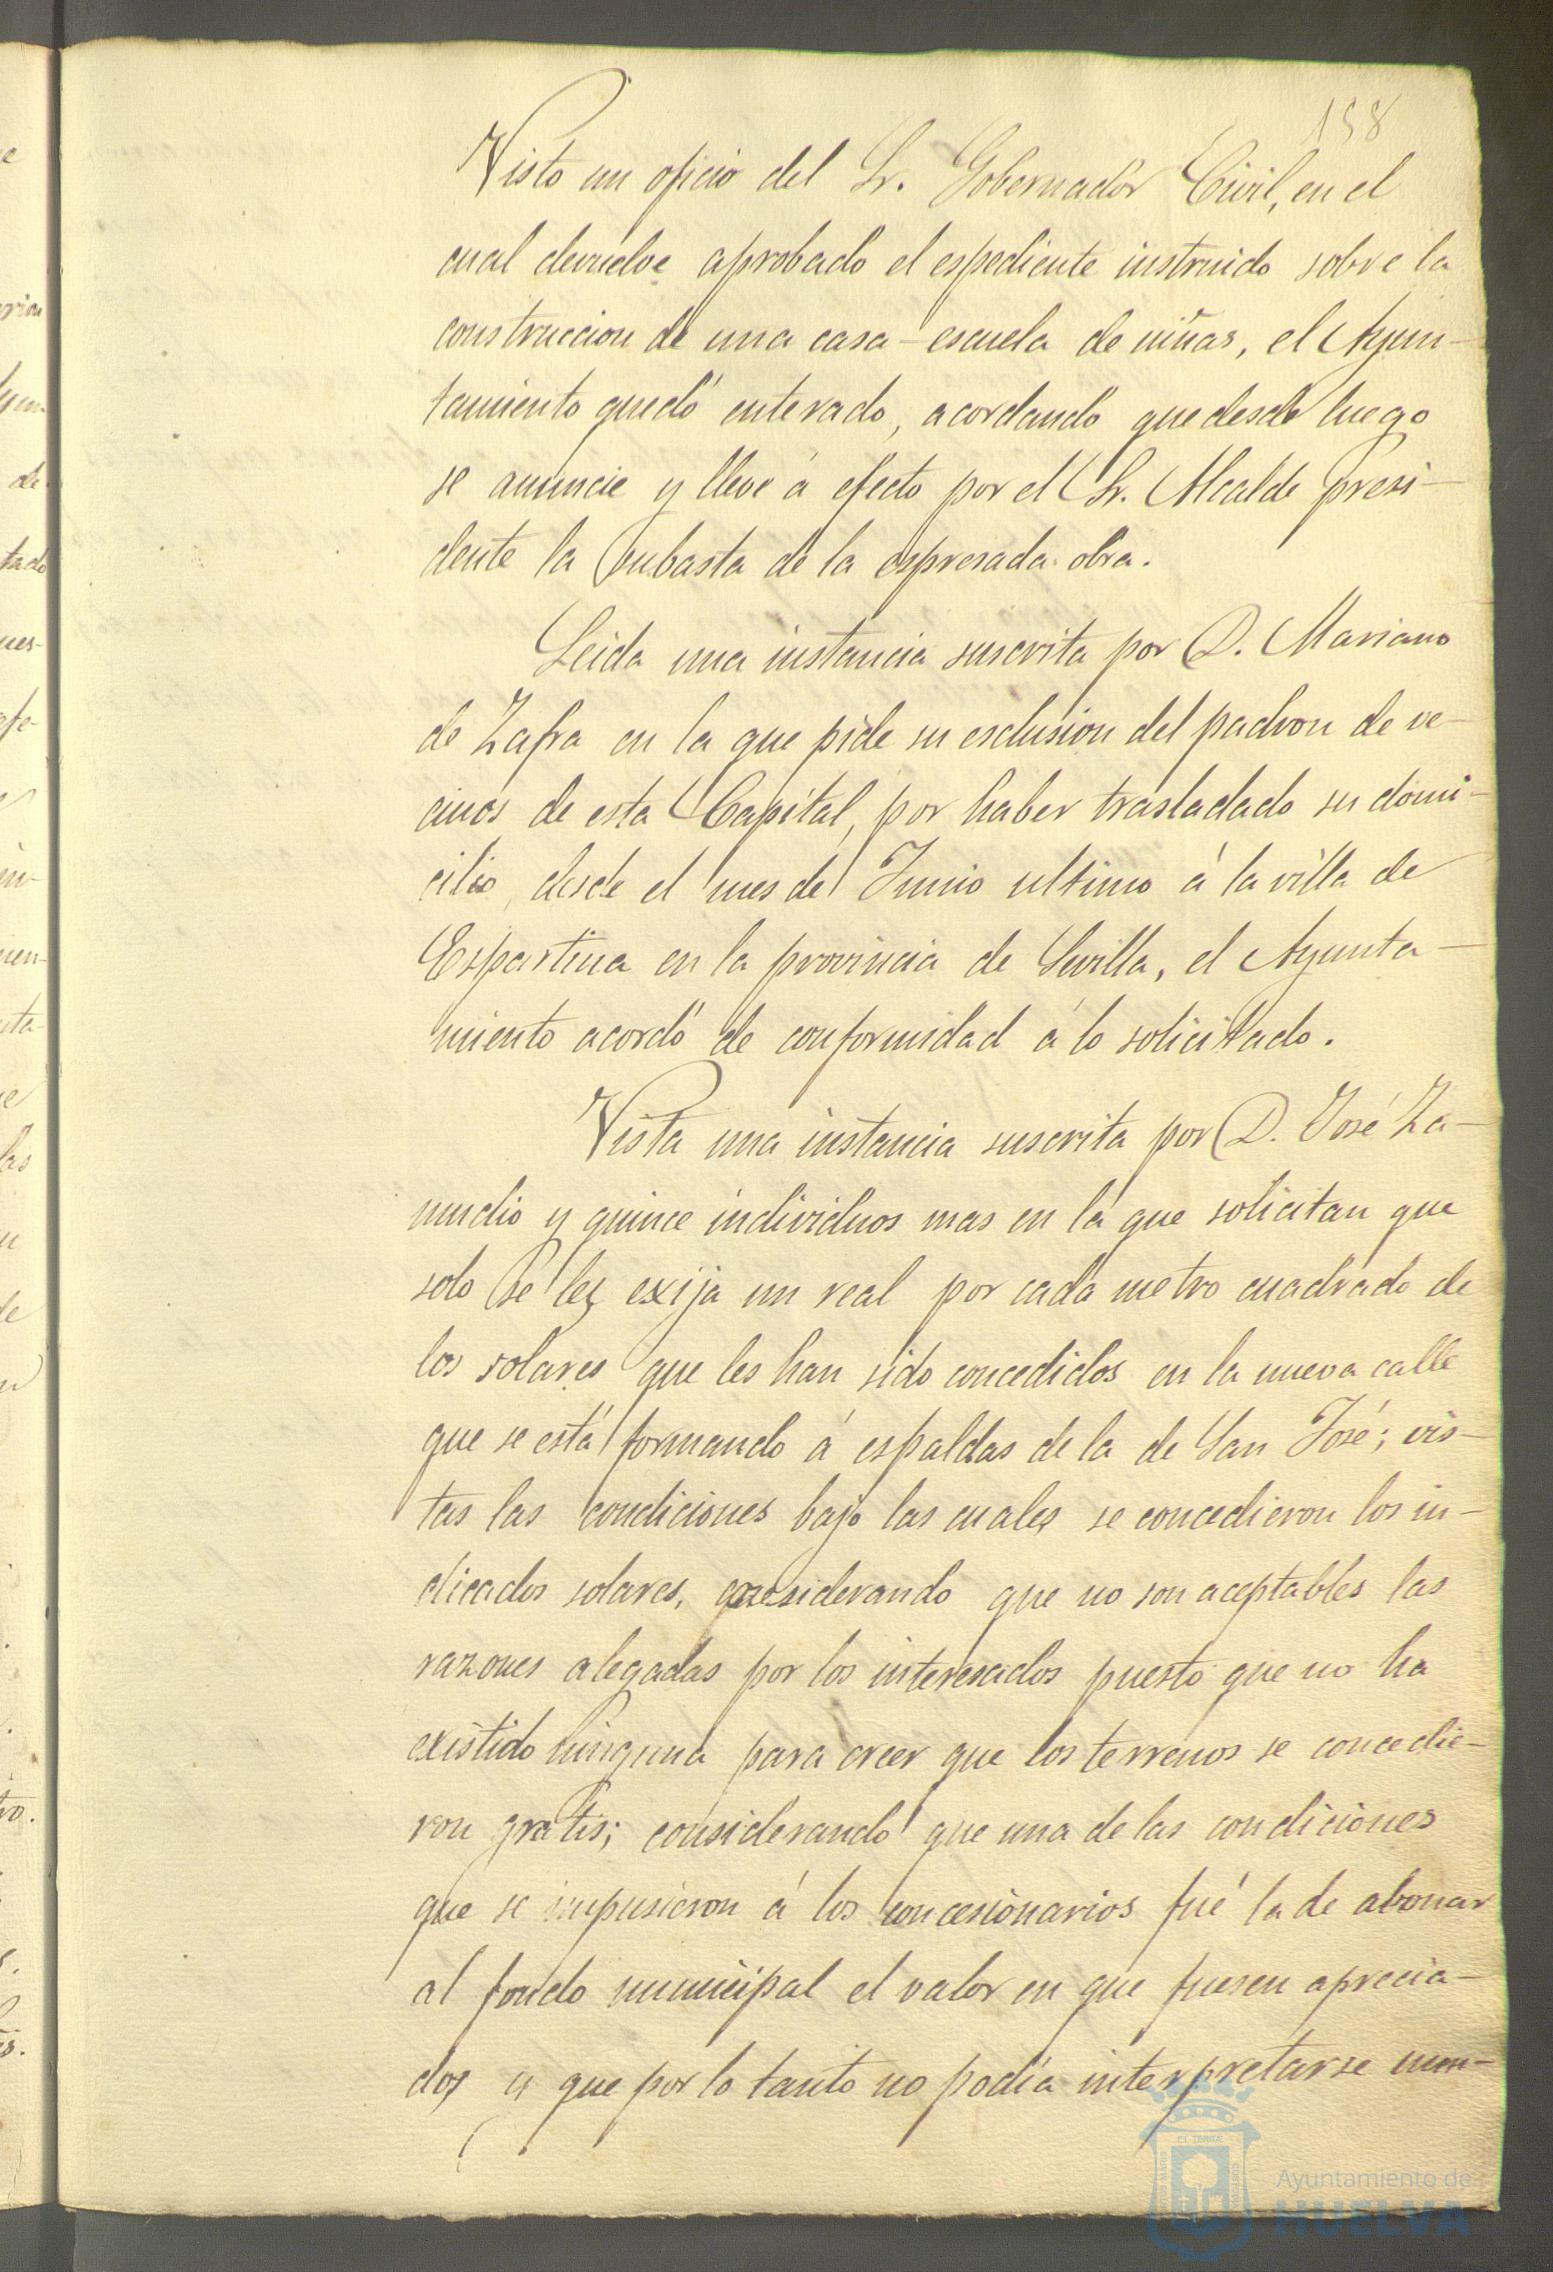 158
Visto un oficio del Sr. Gobernador Civil, en el
cual devuelve aprobado el espediente instruido sobre la
construccion de una casa-escuela de niñas, el Ayun-
tamiento quedó enterado, acordando que desde luego
se anuncie y lleve á efecto por el Sr. Alcalde presi-
dente la subasta de la espresada obra.
Leida una instancia suscrita por D. Mariano
de Zafra en la que pide su esclusion del padron de ve-
cinos de esta Capital, por haber trasladado su domi-
cilio, desde el mes de Junio ultimo á la villa de
Espartina en la provincia de Sevilla, el Ayunta-
miento acordó de conformidad á lo solicitado.
Vista una instancia suscrita por D. José Za-
mudio y quince individuos mas en la que solicitan que
solo se les exija un real por cada metro cuadrado de
los solares que les han sido concedidos en la nueva calle
que se está formando á espaldas de la de San José; vis-
tas las condiciones bajo las cuales se concedieron los in-
dicados solares, considerando que no son aceptables las
razones alegadas por los interesados puesto que no ha
existido ninguna para creer que los terrenos se concedie-
ron gratis; considerando que una de las condiciones
que se impusieron á los concesionarios fué la de abonar
al fondo municipal el valor en que fuesen aprecia-
dos y que por lo tanto no podía interpretarse nun-
Ayuntamiento de
HUELVA